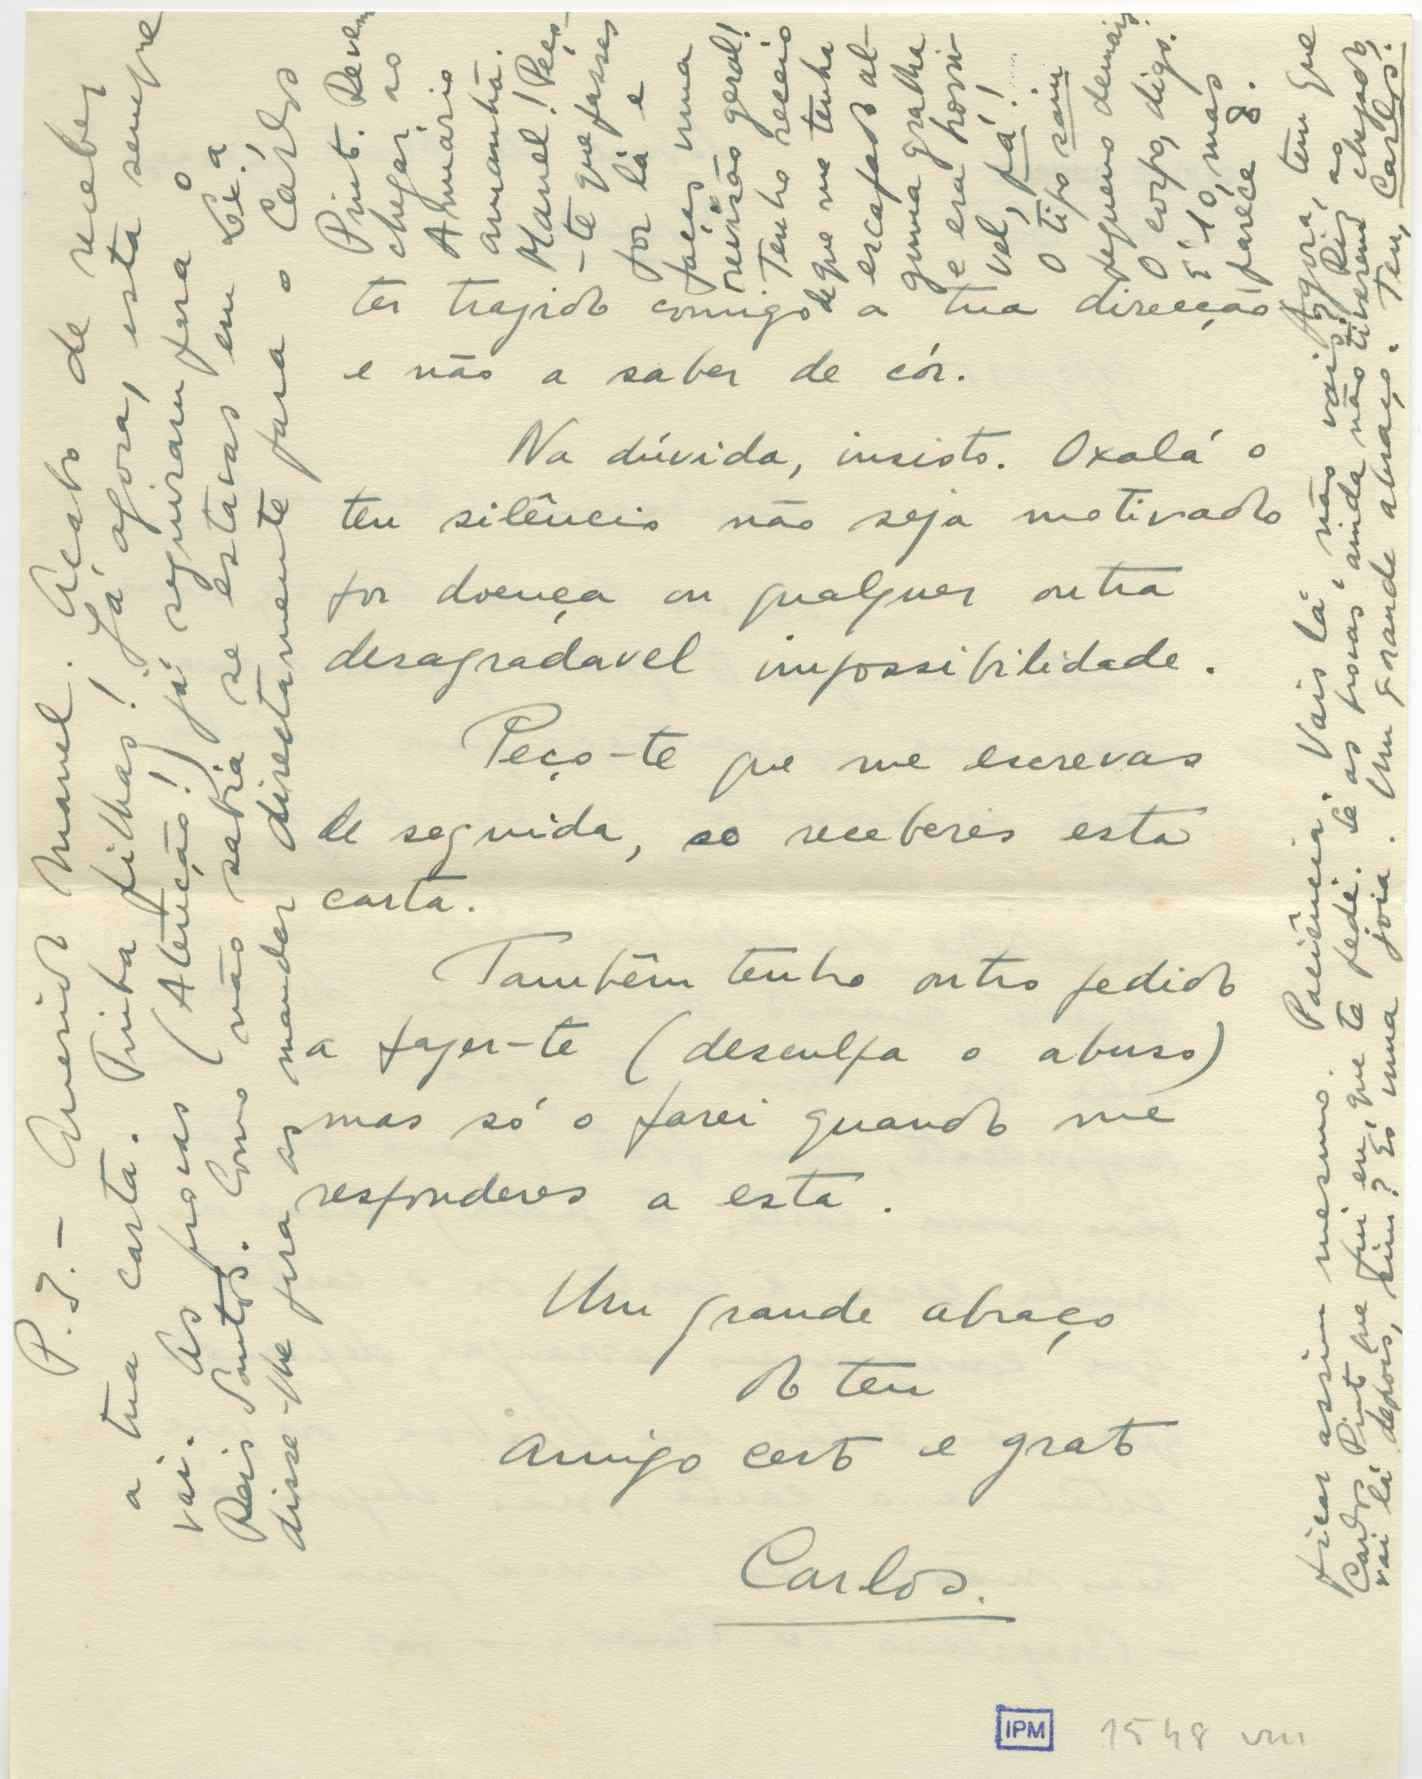 ter trazido comigo a tua direcção
e não a saber de cór.
Na dúvida, insisto. Oxalá o
teu silêncio não seja motivado
por doença ou qualquer outra
desagradavel impossibilidade.
Peço-te que me escrevas
de seguida, se receberes esta
carta.
Também tenho outro pedido
a fazer-te (desculpa o abuso)
mas só o farei quando me
responderes a esta.
Um grande abraço
do teu
amigo certo e grato
Carlos.
P.S. - Querido Manuel. Acabo de receber
a tua carta. Tinha filhas! Já agora, esta sempre
vai. As provas (Atenção!) já seguiram para o
Reis Santos. Como não sabia se estavas em Lx.a
disse-lhe para as mandar directamente para o Carlos
Pinto. Devem
chegar ao
Anuário
amanhã.
Manuel! Peço-
-te que passes
por lá e
faças uma
revisão geral!
Tenho receio
de que me tenha
escapado al-
guma gralha
e era horri-
vel, pá!
O tipo saiu
pequeno demais.
O corpo, digo.
É 10, mas
parece 8.
Agora, tem que
ficar assim mesmo. Paciência. Vais lá, não vais?
Carlos Pinto que fui eu que te pedi. Se as provas ainda não tiverem chegado,
vai lá depois, sim? És uma joia. Um grande abraço. Teu, Carlos.
IPM 1548 VIII